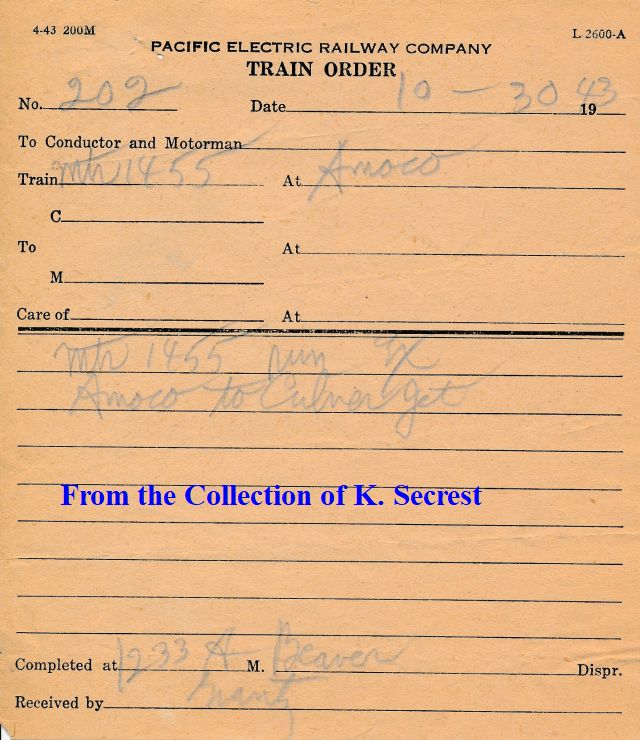 4-43 200M L 2600-A
PACIFIC ELECTRIC RAILWAY COMPANY
TRAIN ORDER
No. 202 Date 10 - 30 1943
To Conductor and Motorman
Train Mtr 1455 At Amoco
C.
To At
M.
Care of At
Mtr 1455 run Ex
Amoco to Culver Jct
From the Collection of K. Secrest
Completed at 1233 A M. Beaver Dispr.
Received by